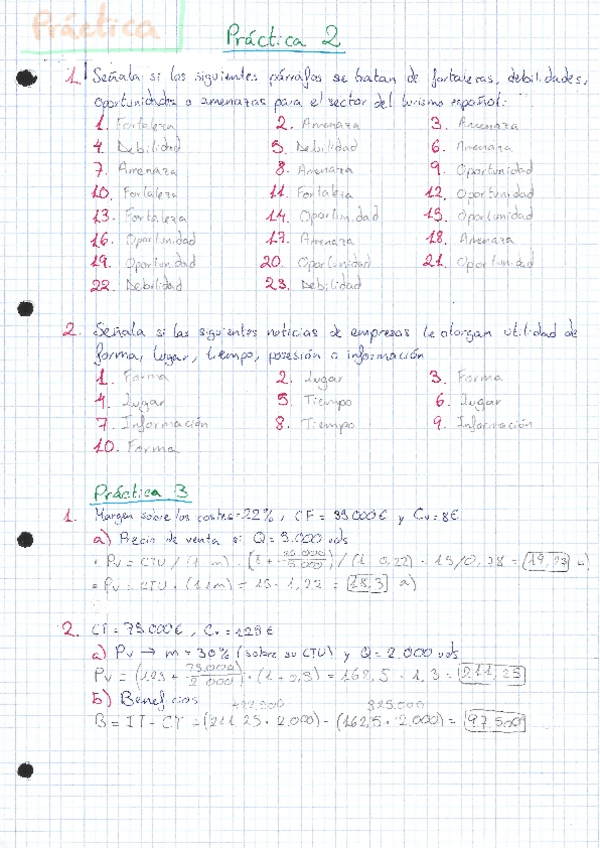 Práctica
Práctica 2
1. Señala si los siguientes párrafos se tratan de fortalezas, debilidades,
oportunidades o amenazas para el sector del turismo español:
1. Fortaleza 2. Amenaza 3. Amenaza
4. Debilidad 5. Debilidad 6. Amenaza
7. Amenaza 8. Amenaza 9. Oportunidad
10. Fortaleza 11. Fortaleza 12. Oportunidad
13. Fortaleza 14. Oportunidad 15. Oportunidad
16. Oportunidad 17. Amenaza 18. Amenaza
19. Oportunidad 20. Oportunidad 21. Oportunidad
22. Debilidad 23. Debilidad
2. Señala si las siguientes noticias de empresas le otorgan utilidad de
forma, lugar, tiempo, posesión o información
1. Forma 2. Lugar 3. Forma
4. Lugar 5 Tiempo 6. Lugar
7. Información 8. Tiempo 9. Información
10. Forma
Práctica 3
1. Margen sobre los costes = 22%, CF = 35000€ y Cv = 8€
a) Precio de venta si Q = 5.000 uds
Pv = CTU / (1 - m) = / (1 - 0,22) = 15/0,78 = 19,23
Pv = CTU · (1+m) = 15 · 1,22 = 18,3 a)
2. CF = 75000€, Cv = 125€
a) Pv → m = 30% (sobre su CTU) y Q = 2.000 uds
Pv = (125 + 75.000/2.000) · (1 + 0,3) = 162,5 · 1,3 = 211,25
b) Beneficios 422.500 325.000
B = IT - CT = (211,25 · 2.000) - (162,5 · 2.000) = 97.500